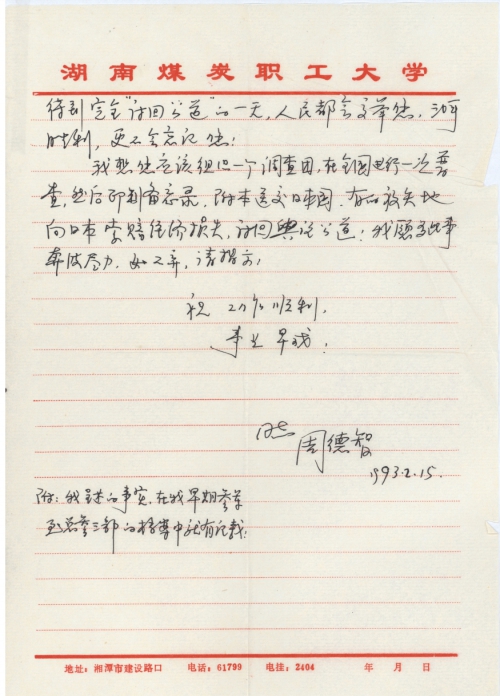 湖南煤炭职工大学
待到完全“讨回公道”的一天,人民都会
胜利,更不会忘记您!
我想您应该组织一个调查团,在全国进行一次普
查,然后印制备忘录,附本送交日本国,有的放矢地
向日本索赔经济损失,讨回舆论公道!我愿为此事
奔波尽力,如不弃,请指示!
祝 工作顺利,
事业早成!
周德智
1993.2.15.
附:我呈述的事实,在我早期参军
至总参三部的档案中就有记载!
地址:湘潭市建设路口 电话:61799 电挂:2404 年 月 日